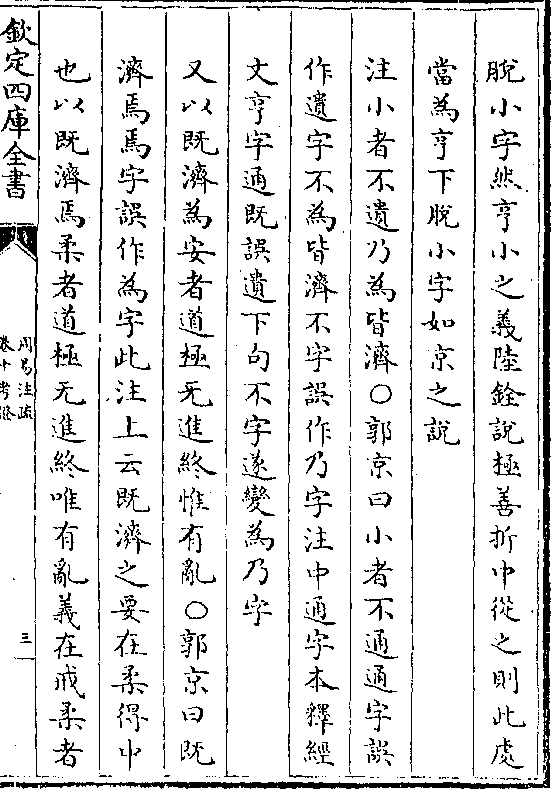 脫小字然亨小之義陸銓說極善折中從之則此處
當為亨下脫小字如京之說
注小者不遺乃為皆濟○郭京曰小者不通通字誤
作遺字不為皆濟不字誤作乃字注中通字本釋經
文亨字通既誤遺下句不字遂變為乃字
又以既濟為安者道極无進終惟有亂○郭京曰既
濟焉焉字誤作為字此注上云既濟之要在柔得中
也以既濟焉柔者道極无進終唯有亂義在戒柔者
欽定四庫全書
周易注疏
卷十考證
三